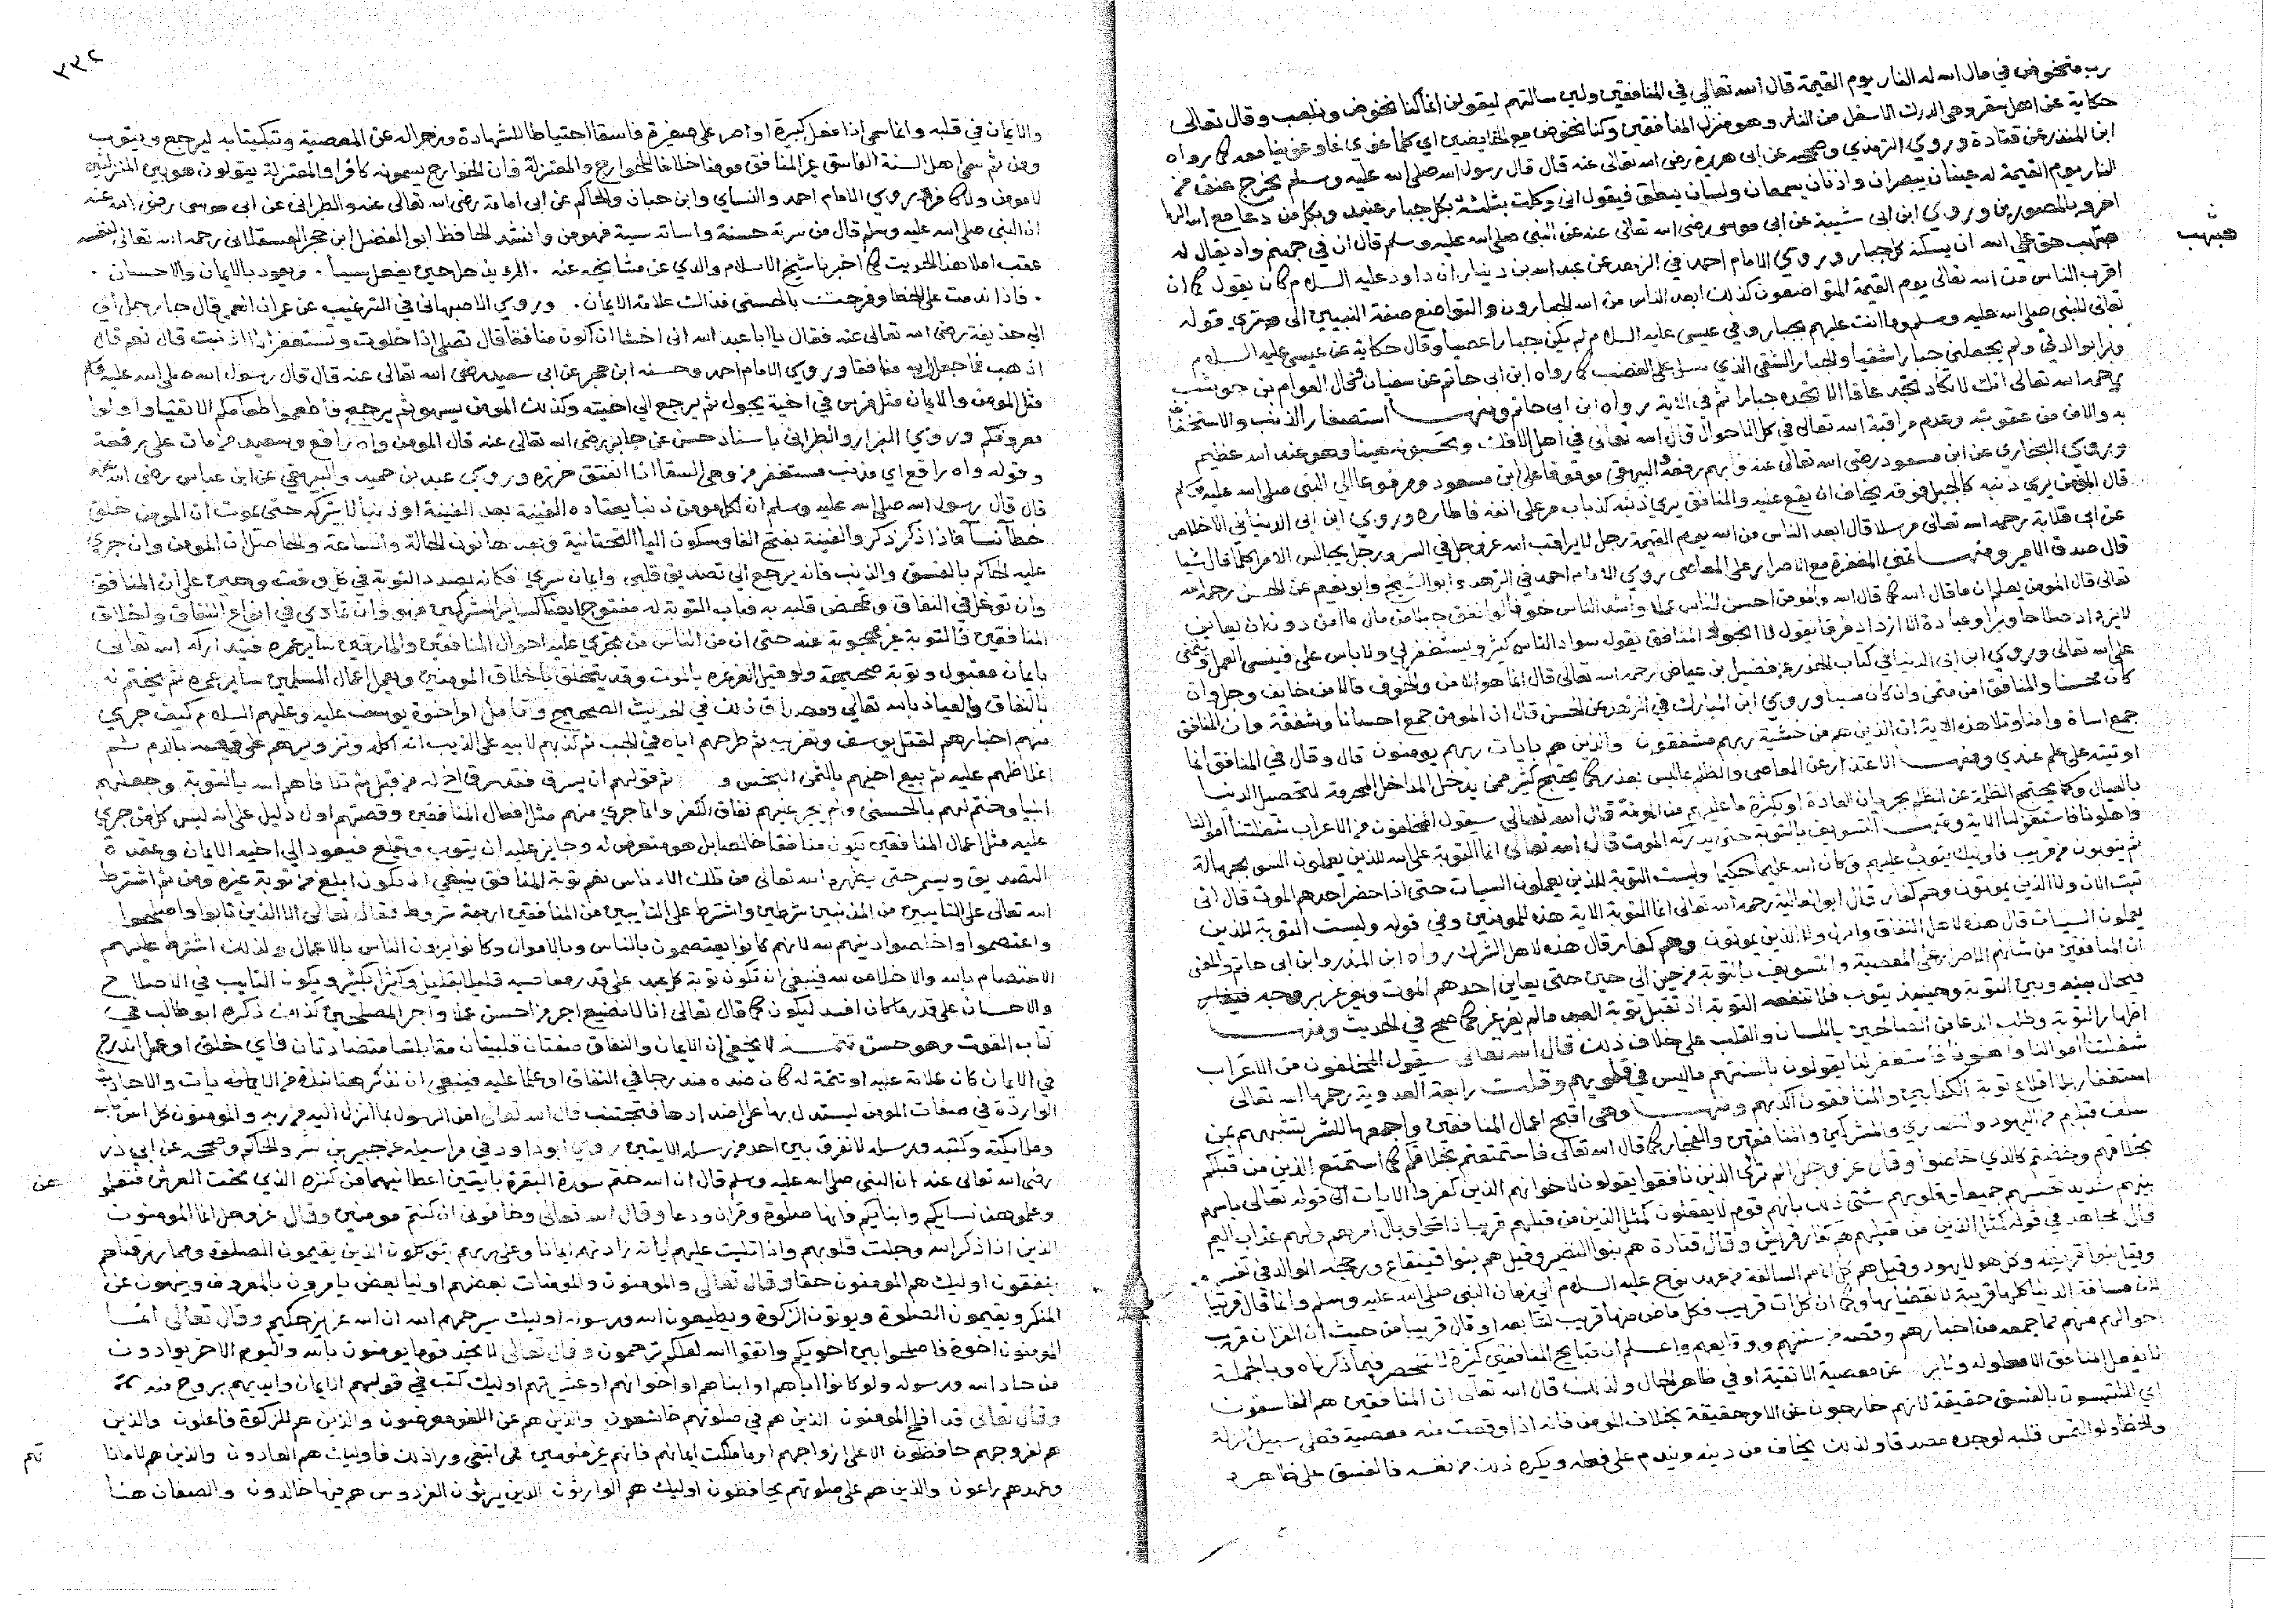 رب متخوض في مال الله له النار يوم القيمة قال الله تعالى في المنافقين ولين سالتهم ليقولن انما كنا نخوض ونلعب وقال تعالى
حكاية عن اهل سقر وهي الدرك الاسفل من النار وهو منزل المنافقين وكنا نخوض مع الخايضين اي كلما غوي غاو غوينا معه كما رواه
ابن المنذر عن قتادة وروي الترمذي وصححه عن ابي هريرة رضى الله تعالى عنه قال قال رسول الله صلى الله عليه وسلم يخرج عنق من
النار يوم القيمة له عينان يبصران واذنان يسمعان ولسان ينطق فيقول اني وكلت بثلثة بكل جبار عنيد وبكل من دعا مع الله الها
اخر وبالمصورين وروي ابن ابي شيبة عن ابي موسى رضى الله تعالى عنه عن النبي صلى الله عليه وسلم قال ان في جهنم واد يقال له
هبهب حق على الله ان يسكنه كل جبار وروي الامام احمد في الزهد عن عبد الله بن دينار ان داود عليه السلام كان يقول كما ان
هبهب
اقرب الناس من الله تعالى يوم القيمة المتواضعون كذلك ابعد الناس من الله الجبارون والتواضع صفة النبيين الى قوله
تعالى للنبي صلى الله عليه وسلم وما انت عليهم بجبار وفي عيسى عليه السلام لم يكن جبارا عصيا وقال حكاية عن عيسى عليه السلام
وبرا بوالدتي ولم يجعلني جبارا شقيا والجبار الشقي الذي على الغضب كما رواه ابن ابي حاتم عن سفيان قال العوام بن حوشب
رحمه الله تعالى انك لا تكاد تجد عاقا الا تجده جبارا ثم في الاية رواه ابن ابي حاتم ومنها استصغار الذنب والاستخفاف
به والامن من عقوبته وعدم مراقبة الله تعالى في كل الاحوال قال الله تعالى في اهل الافك وتحسبونه هينا وهو عند الله عظيم
وروي البخاري عن ابن مسعود رضى الله تعالى عنه البيهقي موقوفا على ابن مسعود ومرفوعا الى النبي صلى الله عليه وسلم
قال المؤمن يري ذنبه كالجبل فوقه يخاف ان يقع عليه والمنافق يري ذنبه كذباب مر على انفه فاطاره وروي ابن ابي الدنيا في الاخلاص
عن ابي قلابة رحمه الله تعالى مرسلا قال ابعد الناس من الله يوم القيمة رجل لا يراقب الله عز وجل في السر ورجل يجالس الامرا كلما قال شيا
قال صدق الامير ومنها تمني المغفرة مع الاصرار على المعاصى روي الامام احمد في الزهد وابو الشيخ وابو نعيم عن الحسن رحمه الله
تعالى قال المومن يعلم ان ما قال الله كما قال الله والمومن احسن الناس عملا واشد الناس خوفا لو انفق جبلا من مال ما امن دون ان يعاين
لا يزداد صلاحا وبرا وعبادة الا ازداد فرقا يقول لا انجو والمنافق يقول سواد الناس كثير وليستغفر لي ولا باس علي فينسي العمل ويتمنى
على الله تعالى وروي ابن ابي الدنيا في كتاب الحذر عن فضيل بن عياض رحمه الله تعالى قال انما هو الامن والخوف فالامن خايف وجل وان
كان محسنا والمنافق امن متمني وان كان مسيا وروي ابن المبارك في الزهد عن الحسن قال ان المومن جمع احسانا وشفقة وان المنافق
جمع اساة وامنا وتلا هذه الاية ان الذين هم من خشية ربهم مشفقون والذين هم بايات ربهم يومنون قال وقال في المنافق انما
اوتيته على علم عندي ومنها الاعتذار عن المعاصى والظلم بما ليس بعذر كما يحتج كثير ممن يدخل المداخل المحرمة لتحصيل الدنيا
بالعيال وكما يحتج الظلمة عن الظلم بجريان العادة او بكثرة ما عليهم من المونة قال الله تعالى سيقول المخلفون من الاعراب شغلتنا اموالنا
واهلونا فاستغفر لنا الاية ومنها التسويف بالتوبة حتى يدركه الموت قال الله تعالى انما التوبة على الله للذين يعملون السو بجهالة
ثم يتوبون من قريب فاوليك يتوب عليهم وكان الله عليما حكيما وليست التوبة للذين يعملون السيات حتى اذا حضر احدهم الموت قال اني
تبت الان ولا الذين يموتون وهم كفار قال ابو العالية رحمه الله تعالى انما التوبة الاية هذه للمومنين وفي قوله وليست التوبة للذين
يعملون السيات قال هذه لاهل النفاق ولا الذين يموتون وهم كفار قال هذه لاهل الشرك رواه ابن المنذر وابن ابي حاتم والمعنى
ان المنافقين من شانهم الاصرار على المعصية والتسويف بالتوبة من حين الى حين حتى يعاين احدهم الموت ويغرغر بروحه
فيحال بينه وبين التوبة وحينيذ يتوب فلا تنفعه التوبة اذ تقبل توبة العبد ما لم يغرغر كما صح في الحديث ومنها
اظهار التوبة وطلب الدعا من الصالحين باللسان والقلب على خلاف ذلك قال الله تعالى سيقول المخلفون من الاعراب
شغلتنا اموالنا واهلونا فاستغفر لنا يقولون بالسنتهم ما ليس في قلوبهم وقالت رابعة العدوية رحمها الله تعالى
استغفار بلا اقلاع توبة الكذابين والمنافقون اكذبهم ومنها وهي اقبح اعمال المنافقين واجمعها للشر تشبههم بمن
سلف قبلهم من اليهود والنصاري والمشركين والمنافقين والفجار كما قال الله تعالى فاستمتعتم بخلاقكم كما استمتع الذين من قبلكم
بخلاقهم وخضتم كالذي خاضوا وقال عز وجل الم تر الى الذين نافقوا يقولون لاخوانهم الذين كفروا الايات الى قوله تعالى باسهم
بينهم شديد تحسبهم جميعا وقلوبهم شتى ذلك بانهم قوم لا يعقلون كمثل الذين من قبلهم قريبا ذاقوا وبال امرهم ولهم عذاب اليم
قال مجاهد في قوله كمثل الذين من قبلهم هم كفار قريش وقال قتادة هم بنوا النضير وقيل هم بنوا قينقاع ورجحه الوالد في تفسيره
وقيل بنوا قريظة وكل هولا يهود وقيل هم كل الامم السالفة من عهد نوح عليه السلام الى زمان النبي صلى الله عليه وسلم وانما قال قريبا
لان مسافة الدنيا كلها قريبة لانقضايها وكما ان كل ات قريب فكل ماض منها قريب لتتابعه او قال قريبا من حيث ان القران قريب
احوالهم منهم بما جمعه من اخبارهم وقصه من سننهم ووقايعهم واعلم ان قبايح المنافقين كثيرة لا تنحصر فيما ذكرناه وبالجملة
لا يفعل المنافق الا معلولة عن معصية الا تقية او في ظاهر الحال ولذلك قال الله تعالى ان المنافقين هم الفاسقون
اي المتلبسون بالفسق حقيقة لانهم خارجون عن الامر حقيقة بخلاف المومن فانه اذا وقعت منه معصية فعلى سبيل الزلة
والخطا ولو التمس قلبه لوجده مصدقا ولذلك يخاف من دينه ويندم على فعله ويكره ذلك من نفسه فالفسق على ظاهره
٣٣٢
والايمان في قلبه وانما سمي اذا فعل كبيرة او اصر على صغيرة فاسقا احتياطا للشهادة وزجرا له عن المعصية وتنكيتا به ليرجع ويتوب
ومن ثم سمى اهل السنة الفاسق غير المنافق مومنا خلافا للخوارج والمعتزلة فان الخوارج يسمونه كافرا والمعتزلة يقولون هو بين المنزلتين
لا مومن ولا كافر وروي الامام احمد والنساي وابن حبان والحاكم عن ابي امامة رضى الله تعالى عنه والطبراني عن ابي موسى رضى الله عنه
ان النبي صلى الله عليه وسلم قال من سرته حسنة واساته سية فهو مومن وانشد الحافظ ابو الفضل ابن حجر العسقلاني رحمه الله تعالى لنفسه
عقب املا هذا الحديث كما اخبرنا شيخ الاسلام والدي عن مشايخه عنه . المرء يذهل حين يفعل سيا . ويعود بالايمان والاحسان .
. فاذا ندمت على الخطا وفرحت بالحسنى فذالك علامة الايمان . وروي الاصبهاني في الترغيب عن عمران القصير قال جا رجل الى
الى حذيفة رضى الله تعالى عنه فقال يا ابا عبد الله اني اخشى ان اكون منافقا قال تصلي اذا خلوت وتستغفر اذا اذنبت قال نعم قال
اذهب فما جعلك الله منافقا وروي الامام احمد وحسنه ابن حجر عن ابي سعيد رضى الله تعالى عنه قال قال رسول الله صلى الله عليه وسلم
مثل المومن والايمان مثل فرس في اخية يجول ثم يرجع الى اخيته وكذلك المومن يسهو ثم يرجع فاطعموا طعامكم الاتقيا واولوا
معروفكم وروي البزار والطبراني باسناد حسن عن جابر رضى الله تعالى عنه قال المومن واه راقع وسعيد من مات على رقعه
وقوله واه راقع اي مذنب مستغفر من وهي السقا اذا انفتق خرزه وروي عبد بن حميد والبيهقي عن ابن عباس رضى الله عنهما
قال قال رسول الله صلى الله عليه وسلم ان لكل مومن ذنبا يعتاده الفينة بعد الفينة او ذنبا لا يتركه حتى يموت ان المومن خلق
خطآ نسآ فاذا ذكر ذكر والفينة بفتح الفا وسكون اليا التحتانية وبعدها نون الحالة والساعة والحاصل ان المومن وان جري
عليه الحاكم بالفسق والذنب فانه يرجع الى تصديق قلبي وايمان سري فكانه بصدد التوبة في كل وقت وحين على ان المنافق
وان توغل في النفاق وتمحض قلبه به فباب التوبة له مفتوح ايضا كساير المشركين فهو وان تمادي في انواع النفاق واخلاق
المنافقين فالتوبة غير محجوبة عنه حتى ان من الناس من يجري عليه احوال المنافقين والمارقين ساير عمره فيتداركه الله تعالى
بايمان مقبول وتوبة صحيحة ولو قبيل الغرغرة بالموت وقد يتخلق باخلاق المومنين ويعمل اعمال المسلمين ساير عمره ثم يختم له
بالنفاق والعياذ بالله تعالى ومصداق ذلك في الحديث الصحيح وتامل اخوة يوسف عليه وعليهم السلام كيف جري
منهم اختيارهم لقتل يوسف وتغريبه ثم طرحهم اياه في الجب ثم كذبهم لابيه على الذيب انه اكله وتزويرهم على قميصه بالدم ثم
اغلاظهم عليه ثم بيع اخيهم بالثمن البخس و ثم قولهم ان يسرق فقد سرق اخ له من قبل ثم تداركهم الله بالتوبة وجعلهم
انبيا وختم لهم بالحسنى ولم يجر عليهم نفاق الكفر وانما جري منهم مثل افعال المنافقين وقصتهم اول دليل على انه ليس كل من جري
عليه مثل اعمال المنافقين يكون منافقا خالصا بل هو متعرض له وجايز عليه ان يتوب ويقلع فيعود الى اخية الايمان وعقدة
التصديق ويسر حتى يطهره الله تعالى من تلك الادناس نعم توبة المنافق ينبغي ان تكون ابلغ من توبة غيره ومن ثم اشترط
الله تعالى على التايبين من المذنبين شرطين واشترط على التايبين من المنافقين اربعة شروط فقال تعالى الا الذين تابوا واصلحوا
واعتصموا واخلصوا دينهم لله لانهم كانوا يعتصمون بالناس وبالاموال وكانوا يراون الناس بالاعمال ولذلك اشترط عليهم
الاعتصام بالله والاخلاص لله فينبغي ان تكون توبة كل عبد على قدر معاصيه قليلا بقليل وكثيرا بكثير ويكون التايب في الاصلاح
والاحسان على قدر ما كان افسد ليكون كما قال تعالى انا لا نضيع اجر من احسن عملا واجر المصلحين كذلك ذكره ابو طالب في
كتاب القوت وهو حسن تتمة لا يخفى ان الايمان والنفاق صفتان قلبيتان متقابلتان متضادتان فاي خلق او عمل اندرج
في الايمان كان علامة عليه او تتمة له كان ضده مندرجا في النفاق او علما عليه فينبغي ان نذكر هنا نبذة من الايات والاحاديث
الواردة في صفات المومن ليستدل بها على اضدادها فتجتنب قال الله تعالى امن الرسول بما انزل اليه من ربه والمومنون كل امن بالله
وملايكته وكتبه ورسله لا نفرق بين احد من رسله الايتين روي ابو داود في مراسيله عن جبير بن نفير والحاكم وصححه عن ابي ذر
رضى الله تعالى عنه ان النبي صلى الله عليه وسلم قال ان الله ختم سورة البقرة بايتين اعطانيهما من كنزه الذي تحت العرش فتعلموهن
وعلموهما نساكم وابناكم فانها صلوة وقران ودعا وقال الله تعالى وخافوني ان كنتم مومنين وقال عز وجل انما المومنون
الذين اذا ذكر الله وجلت قلوبهم واذا تليت عليهم اياته زادتهم ايمانا وعلى ربهم يتوكلون الذين يقيمون الصلوة ومما رزقناهم
ينفقون اوليك هم المومنون حقا وقال تعالى والمومنون والمومنات بعضهم اوليا بعض يامرون بالمعروف وينهون عن
المنكر ويقيمون الصلوة ويوتون الزكوة ويطيعون الله ورسوله اوليك سيرحمهم الله ان الله عزيز حكيم وقال تعالى انما
المومنون اخوة فاصلحوا بين اخويكم واتقوا الله لعلكم ترحمون وقال تعالى لا تجد قوما يومنون بالله واليوم الاخر يوادون
من حاد الله ورسوله ولو كانوا اباهم او ابناهم او اخوانهم او عشيرتهم اوليك كتب في قلوبهم الايمان وايدهم بروح منه
وقال تعالى قد افلح المومنون الذين هم في صلوتهم خاشعون والذين هم عن اللغو معرضون والذين هم للزكوة فاعلون والذين
هم لفروجهم حافظون الا على ازواجهم او ما ملكت ايمانهم فانهم غير ملومين فمن ابتغى ورا ذلك فاوليك هم العادون والذين هم لاماناتهم
وعهدهم راعون والذين هم على صلوتهم يحافظون اوليك هم الوارثون الذين يرثون الفردوس هم فيها خالدون والصفات هنا